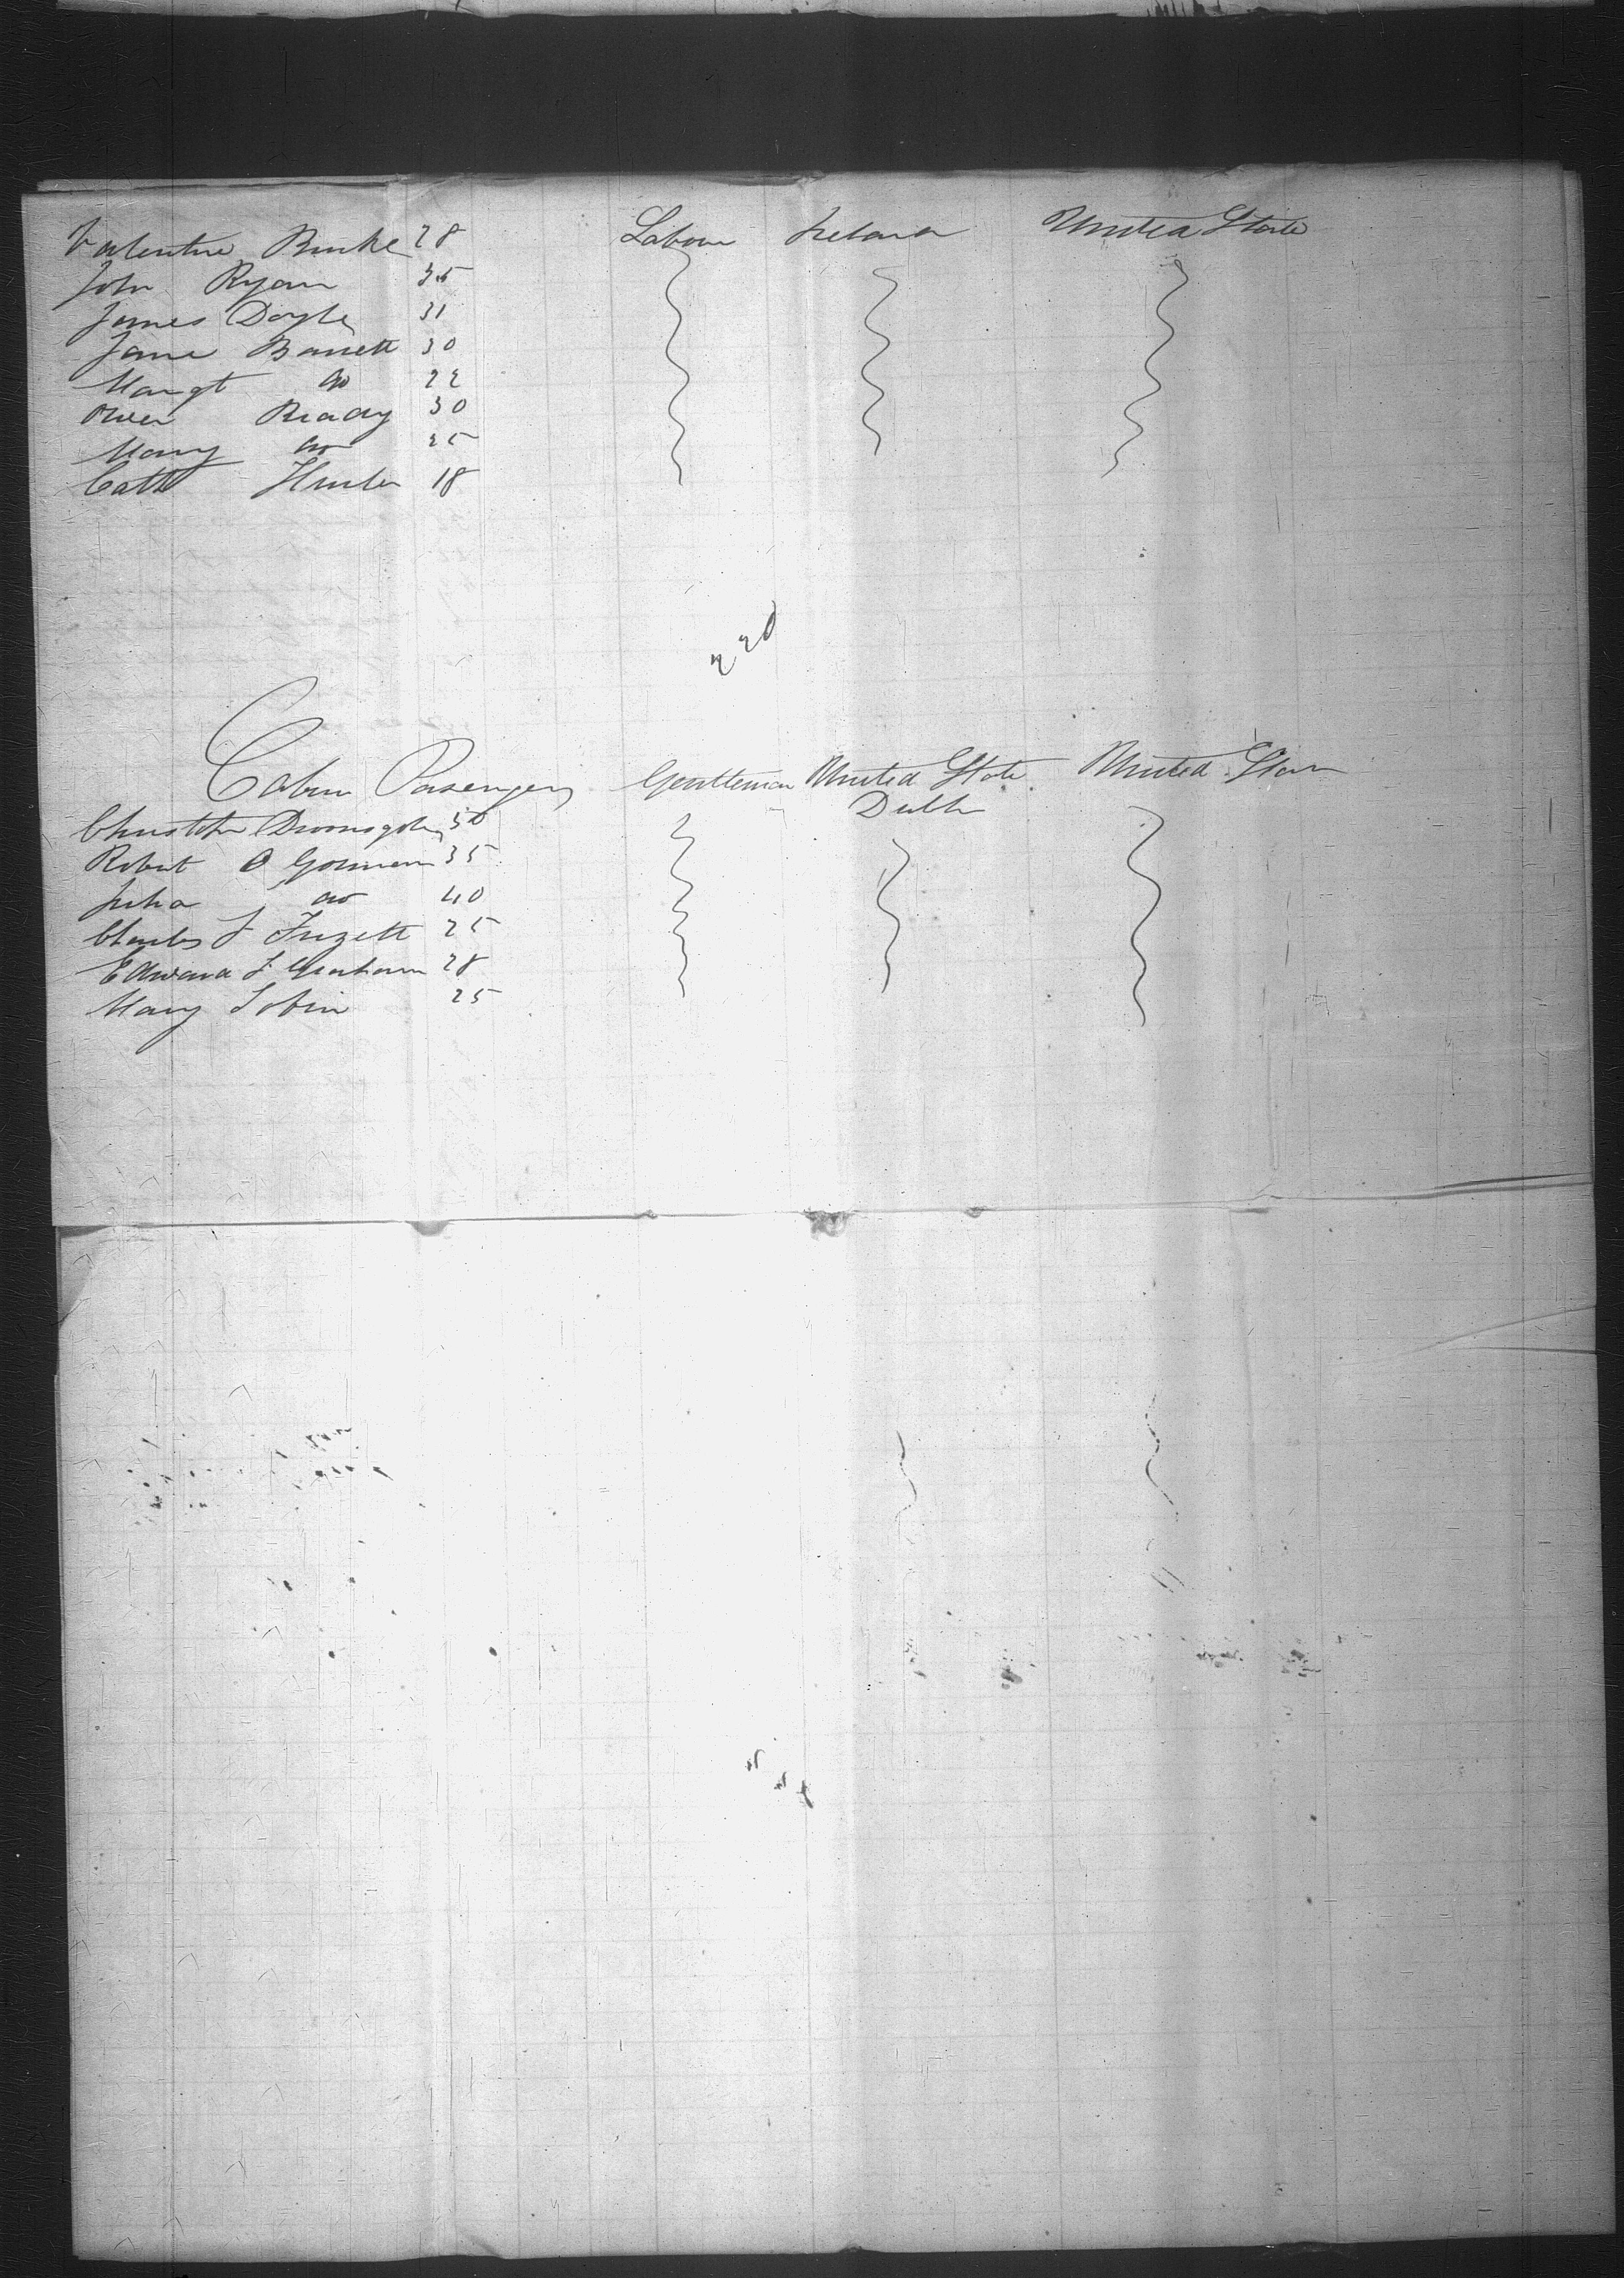 Valentine Burke 28 Labour Ireland United State
John Ryan 35
James Doyle 31
Jane Barrett 30
Margt do 22
Owen Brady 30
Mary do 25
Cath Hunter 18
220
Cabin Pasengers Gentleman United State United State
Dublin
Christoher 30
Robert O Gorman 35
Julia do 40
Charles J Frizett 25
Edward J Graham 28
Mary Tobin 25